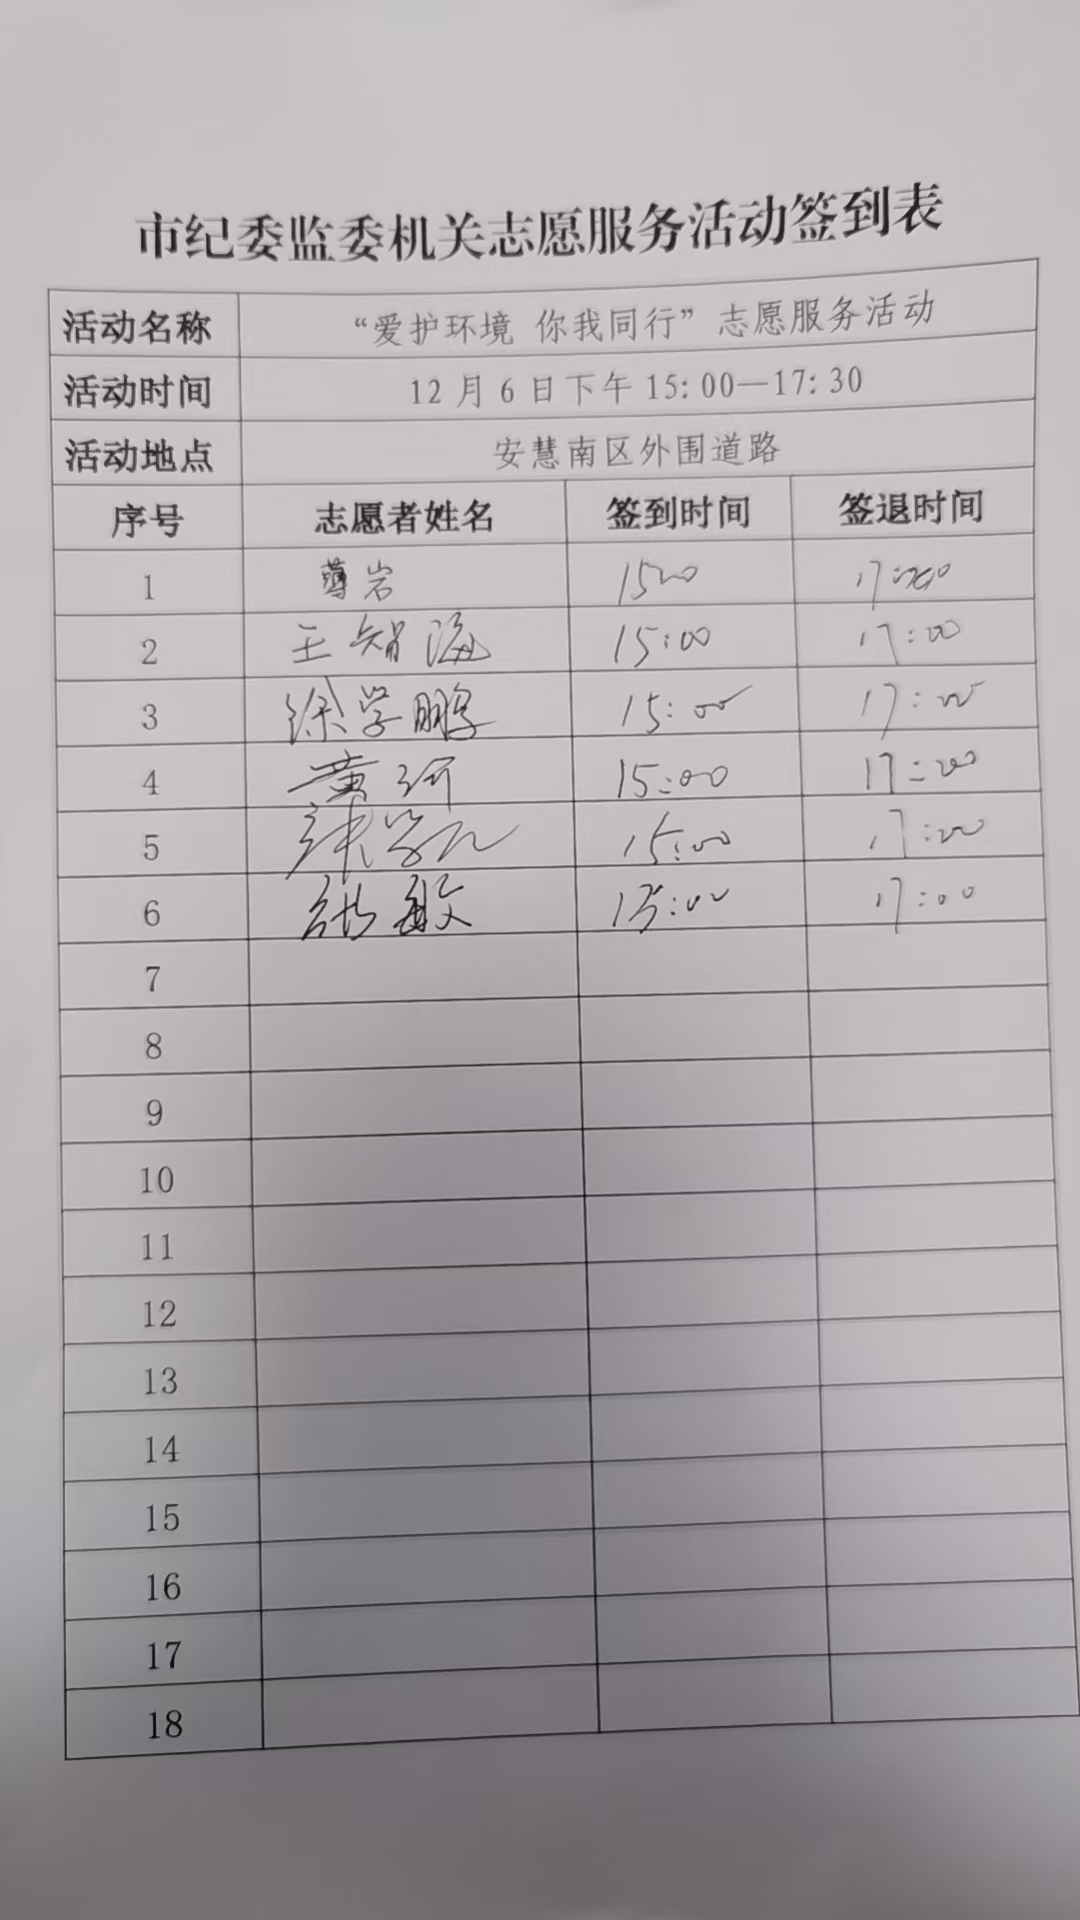 市纪委监委机关志愿服务活动签到表
活动名称 “爱护环境 你我同行”志愿服务活动
活动时间 12月6日下午15:00—17:30
活动地点 安慧南区外围道路
序号 志愿者姓名 签到时间 签退时间
1 薄岩 1500 17:00
2 王智海 15:00 17:00
3 徐学鹏 15:00 17:00
4 黄河 15:00 17:00
5 15:00 17:00
6 敏 15:00 17:00
7
8
9
10
11
12
13
14
15
16
17
18